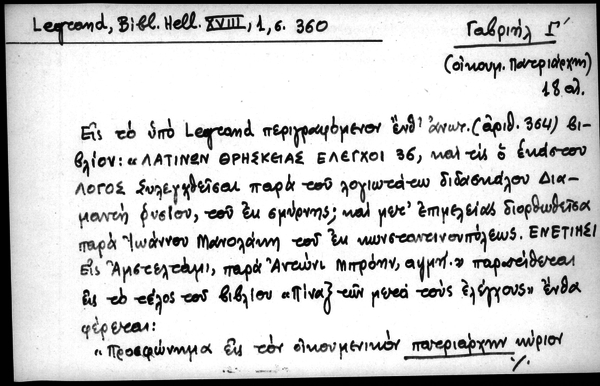 Legrand, Bibl. Hell. XVIII, 1, σ. 360
Γαβριήλ Γ΄
(οἰκουμ. Πατριάρχης)
18 αι.
Εἰς τό ὑπό Legrand περιγραφόμενον ἔνθ' ἀνωτ. (ἀριθ. 364) βι-
βλίον: «ΛΑΤΙΝΩΝ ΘΡΗΣΚΕΙΑΣ ΕΛΕΓΧΟΙ 36, καί τίς ὁ ἑκάστου
ΛΟΓΟΣ συλεγχθεῖσαι παρά τοῦ λογιωτάτου διδασκάλου Δια-
μαντῆ ρυσίου, τοῦ ἐκ σμύρνης; καί μετ' ἐπιμελείας διορθωθεῖσα
παρά Ἰωάννου Μανολάκη τοῦ ἐκ κωνσταντινουπόλεως. ΕΝΕΤΙΗΣΙ
Εἰς Ἀμστελτάμι, παρά Ἀντώνι Μπρόην, αψμή.» παρατίθεται
εἰς τό τέλος τοῦ βιβλίου «Πίναξ τῶν μετά τούς ἐλέγχους» ἔνθα
φέρεται:
«Προσφώνημα εἰς τόν οἰκουμενικόν πατριάρχην κύριον
./.